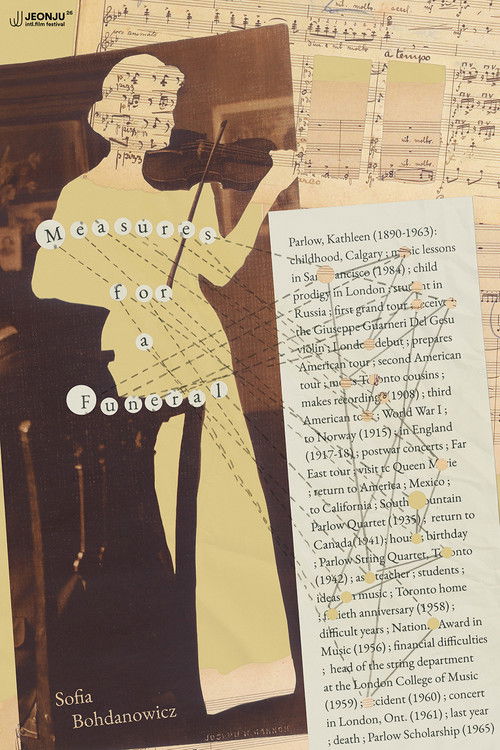 JEONJU 26
intl.film festival
accel.
a tempo
molto
Measures
for
a
Funeral
Parlow, Kathleen (1890-1963):
childhood, Calgary ; music lessons
in San Francisco (1984) ; child
prodigy in London ; student in
Russia ; first grand tour ; receives
the Giuseppe Guarneri Del Gesu
violin ; London debut ; prepares
American tour ; second American
tour ; meets Toronto cousins ;
makes recordings (1908) ; third
American tour ; World War I ;
to Norway (1915) ; in England
(1917-18) ; postwar concerts ; Far
East tour ; visit to Queen Marie
; return to America ; Mexico ;
to California ; South Mountain
Parlow Quartet (1935) ; return to
Canada (1941); house ; birthday
; Parlow String Quartet, Toronto
(1942) ; as teacher ; students ;
ideas music ; Toronto home
; fiftieth anniversary (1958) ;
difficult years ; National Award in
Music (1956) ; financial difficulties
; head of the string department
at the London College of Music
(1959) ; accident (1960) ; concert
in London, Ont. (1961) ; last year
; death ; Parlow Scholarship (1965)
Sofia
Bohdanowicz